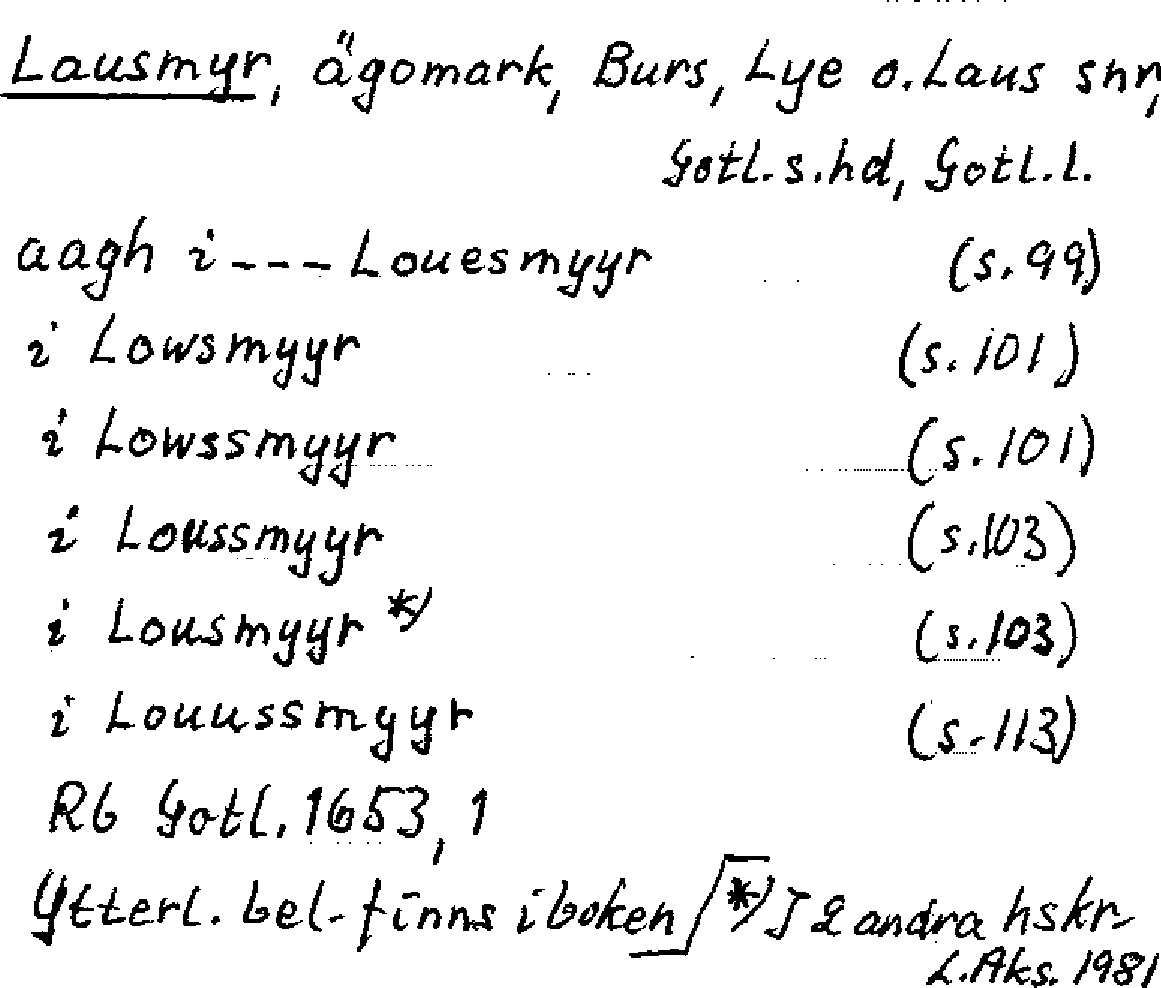 Lausmyr, ägomark, Burs, Lye o. Laus snr,
Gotl. s. hd, Gotl. l.
aagh i --- Louesmyyr (s. 99)
i Lowsmyyr (s. 101)
i Lowssmyyr (s. 101)
i Loussmyyr (s. 103)
i Lousmyyr *) (s. 103)
i Louussmyyr (s. 113)
Rb Gotl. 1653, 1
Ytterl. bel. finns i boken *) I 2 andra hskr
L. Aks. 1981